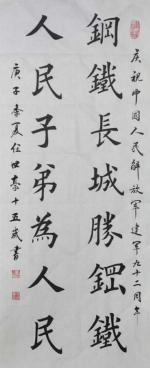 庆祝中国人民解放軍建軍九十二周年
鋼鐵長城勝鋼鐵
人民子弟為人民
庚子季夏任世豪十五歲書